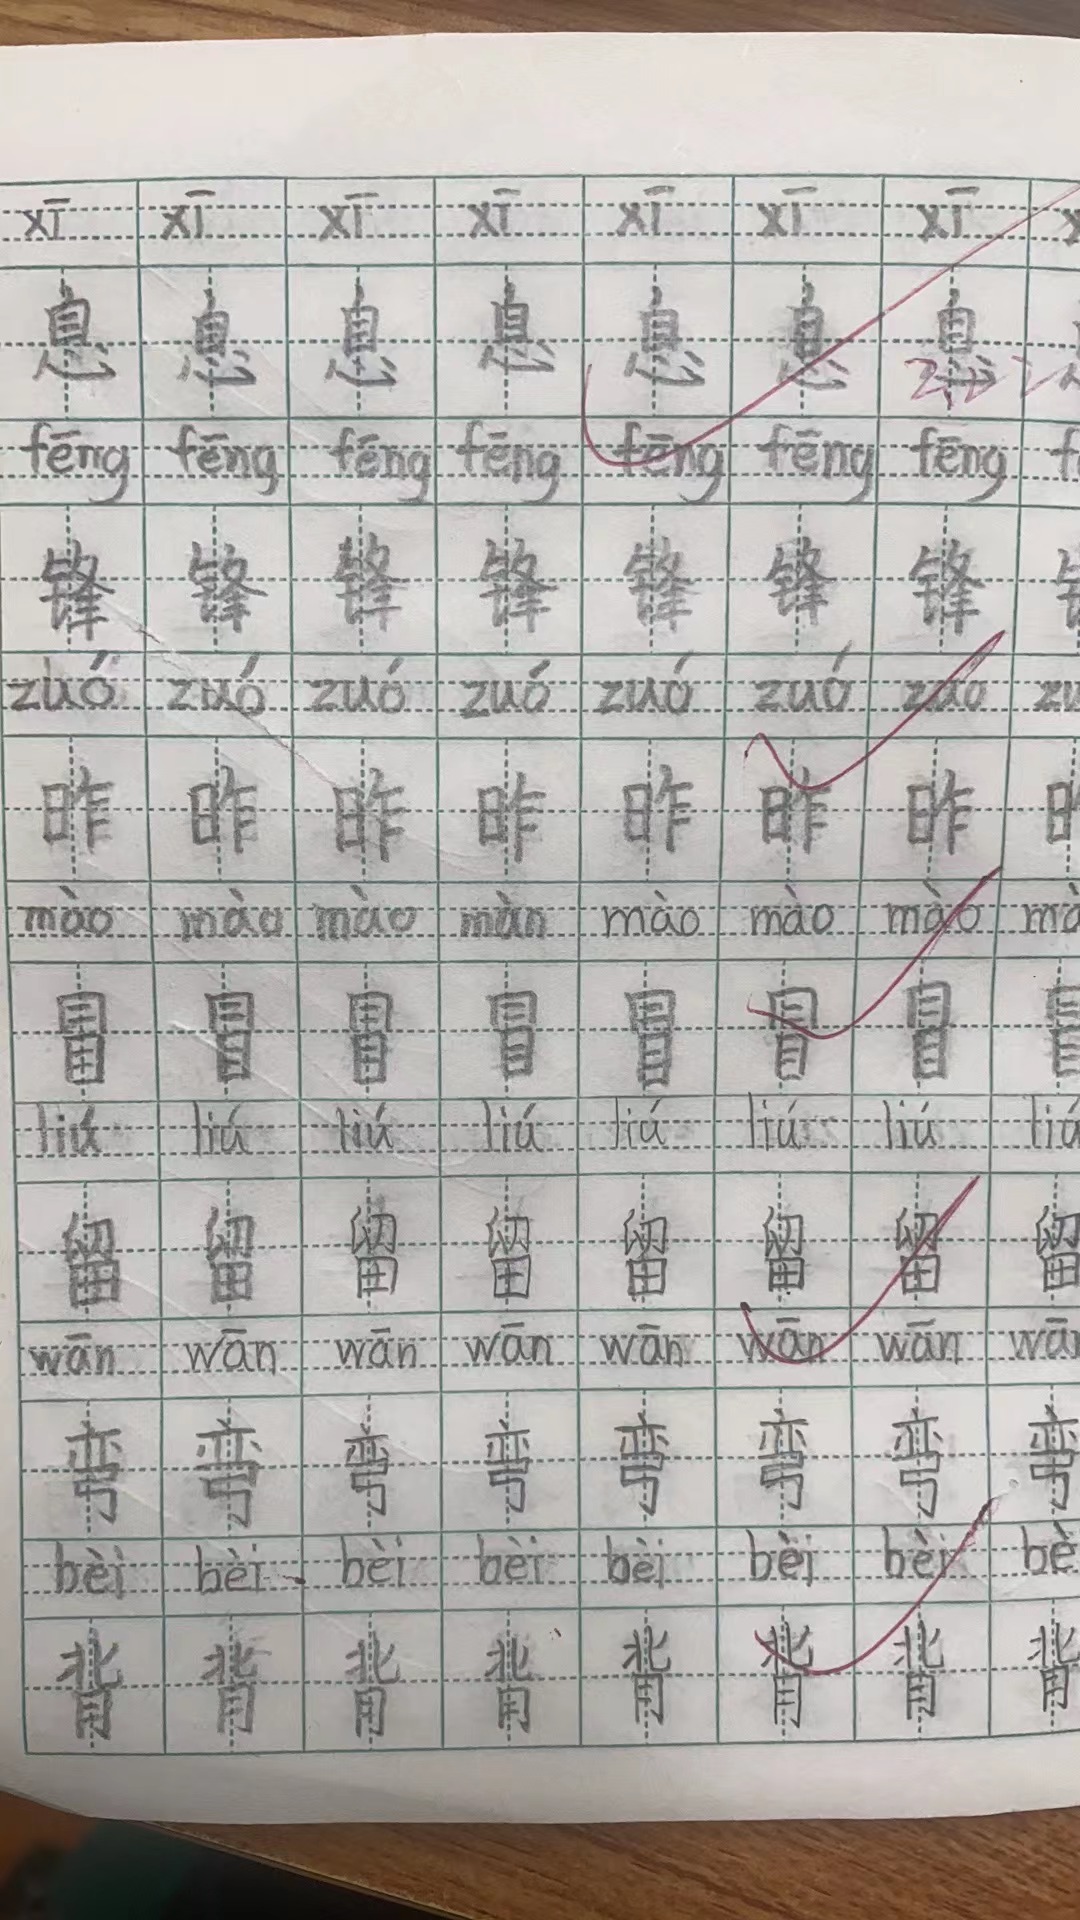 xī xī xī xī xī xī xī
息 息 息 息 息 息 息
fēng fēng fēng fēng fēng fēng fēng
锋 锋 锋 锋 锋 锋 锋
zuó zuó zuó zuó zuó zuó zuo
昨 昨 昨 昨 昨 昨 昨
mào mào mào màn mào mào mào
冒 冒 冒 冒 冒 冒 冒
liú liú liú liú liú liú liú liú
留 留 留 留 留 留 留 留
wān wān wān wān wān wān wān wān
弯 弯 弯 弯 弯 弯 弯 弯
bèi bèi bèi bèi bèi bèi bèi bè
背 背 背 背 背 背 背 背